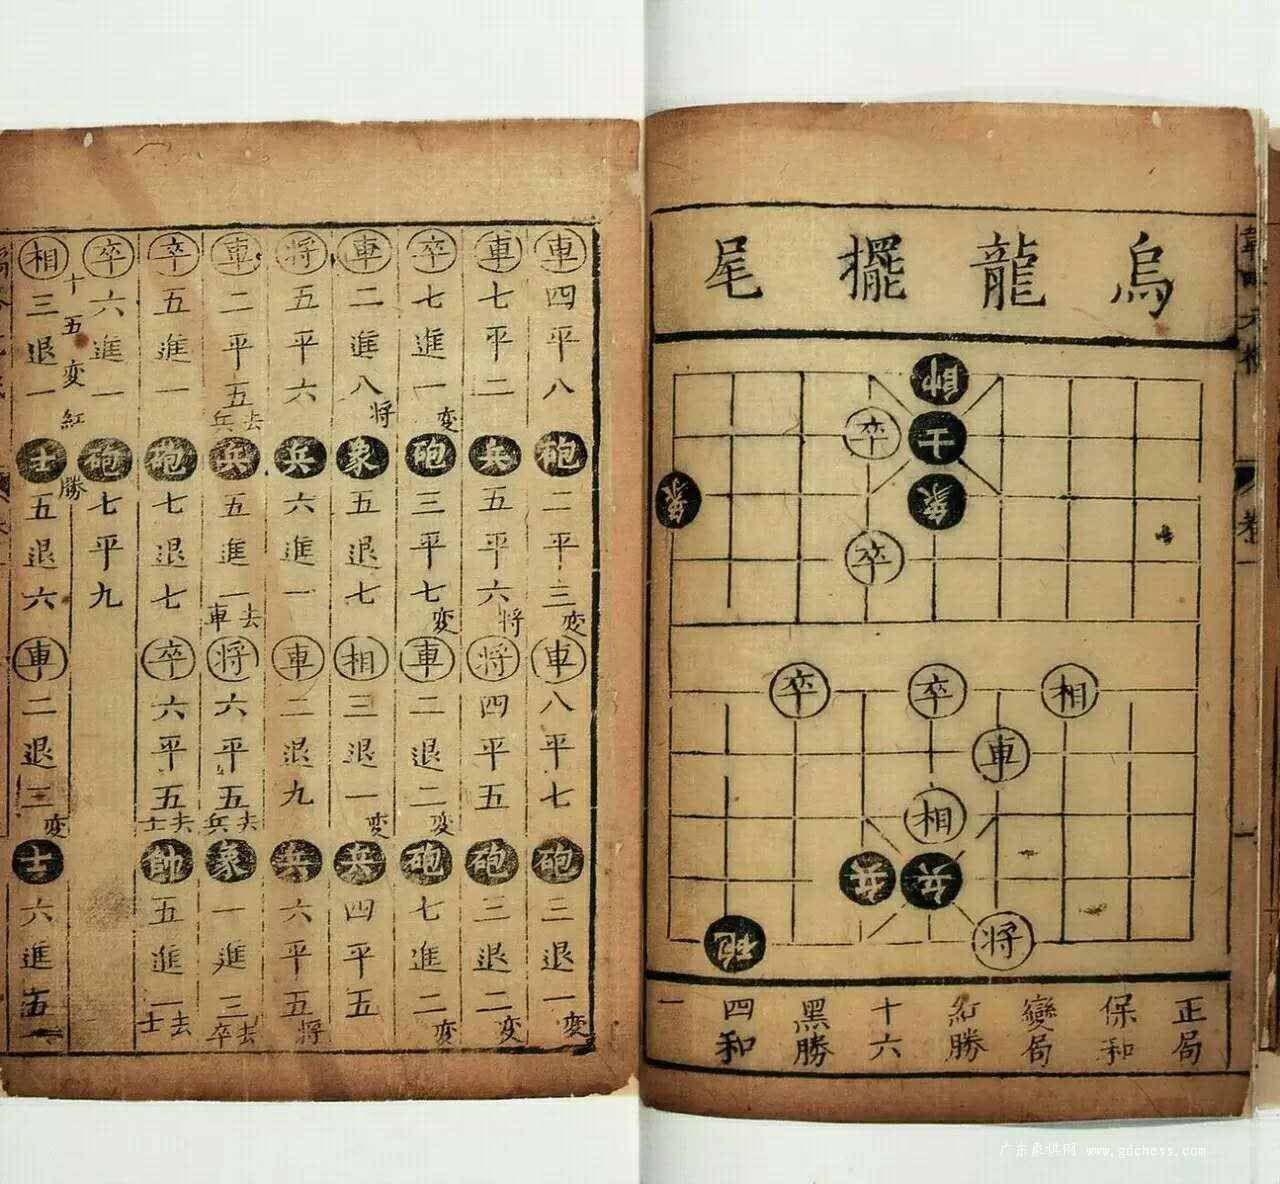 烏龍擺尾
帥
卒士
象象
卒
卒卒相
車
相
兵兵
砲将
正局
保和
變局
紅勝
十六
黑勝
四和
一
車四平八砲二平三変車八平七砲三退一変
車七平二兵五平六将将四平五砲三退二変
卒七進一変砲三平七変車二退二変砲七進二変
車二進八将象五退七相三退一変兵四平五
将五平六兵六進一車二退九兵六平五将
車二平五去兵兵五進一去車将六平五去兵象一進三去卒
卒五進一砲七退七卒六平五去士帥五進一去士
卒六進一砲七平九
十五変紅勝
相三退一士五退六車二退三変士六進五
广东象棋网 www.gdchess.com